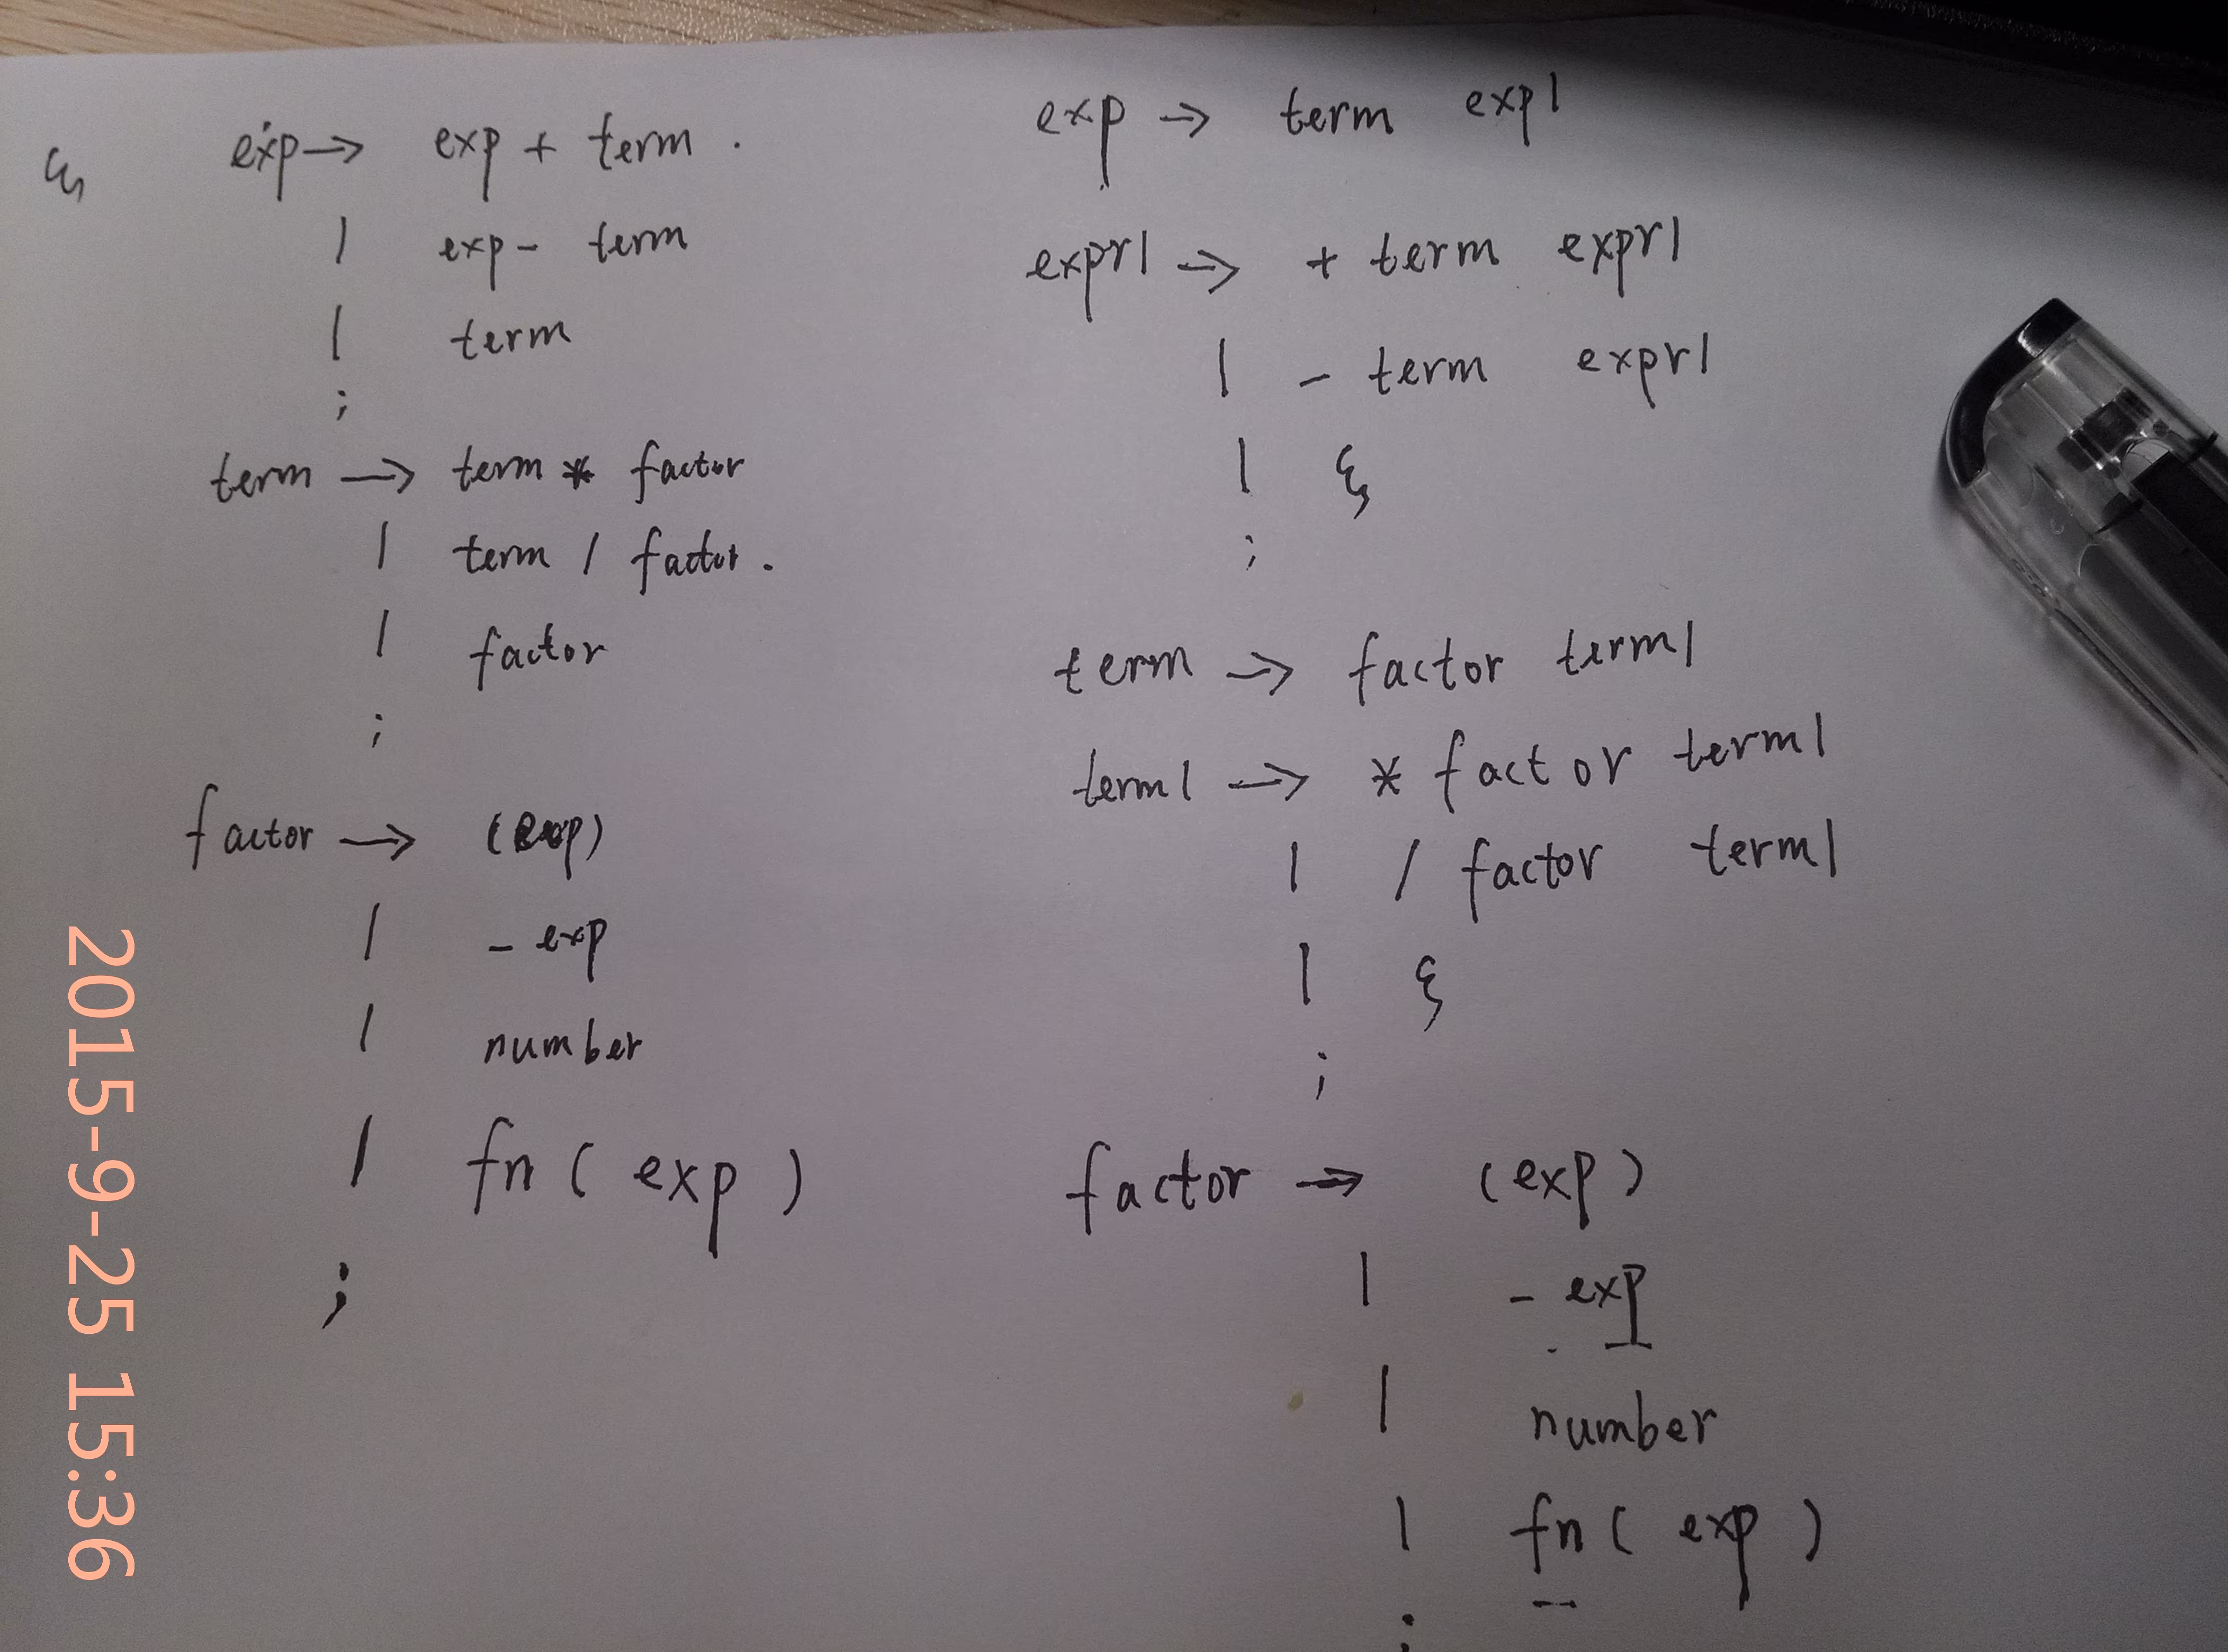 ξ
exp → exp + term .
| exp - term
| term
;
term → term * factor
| term / factor .
| factor
;
factor → (exp)
| - exp
| number
| fn ( exp )
;
exp → term exp1
expr1 → + term expr1
| - term expr1
| ξ
;
term → factor term1
term1 → * factor term1
| / factor term1
| ξ
;
factor → (exp)
| - exp
| number
| fn ( exp )
;
2015-9-25 15:36